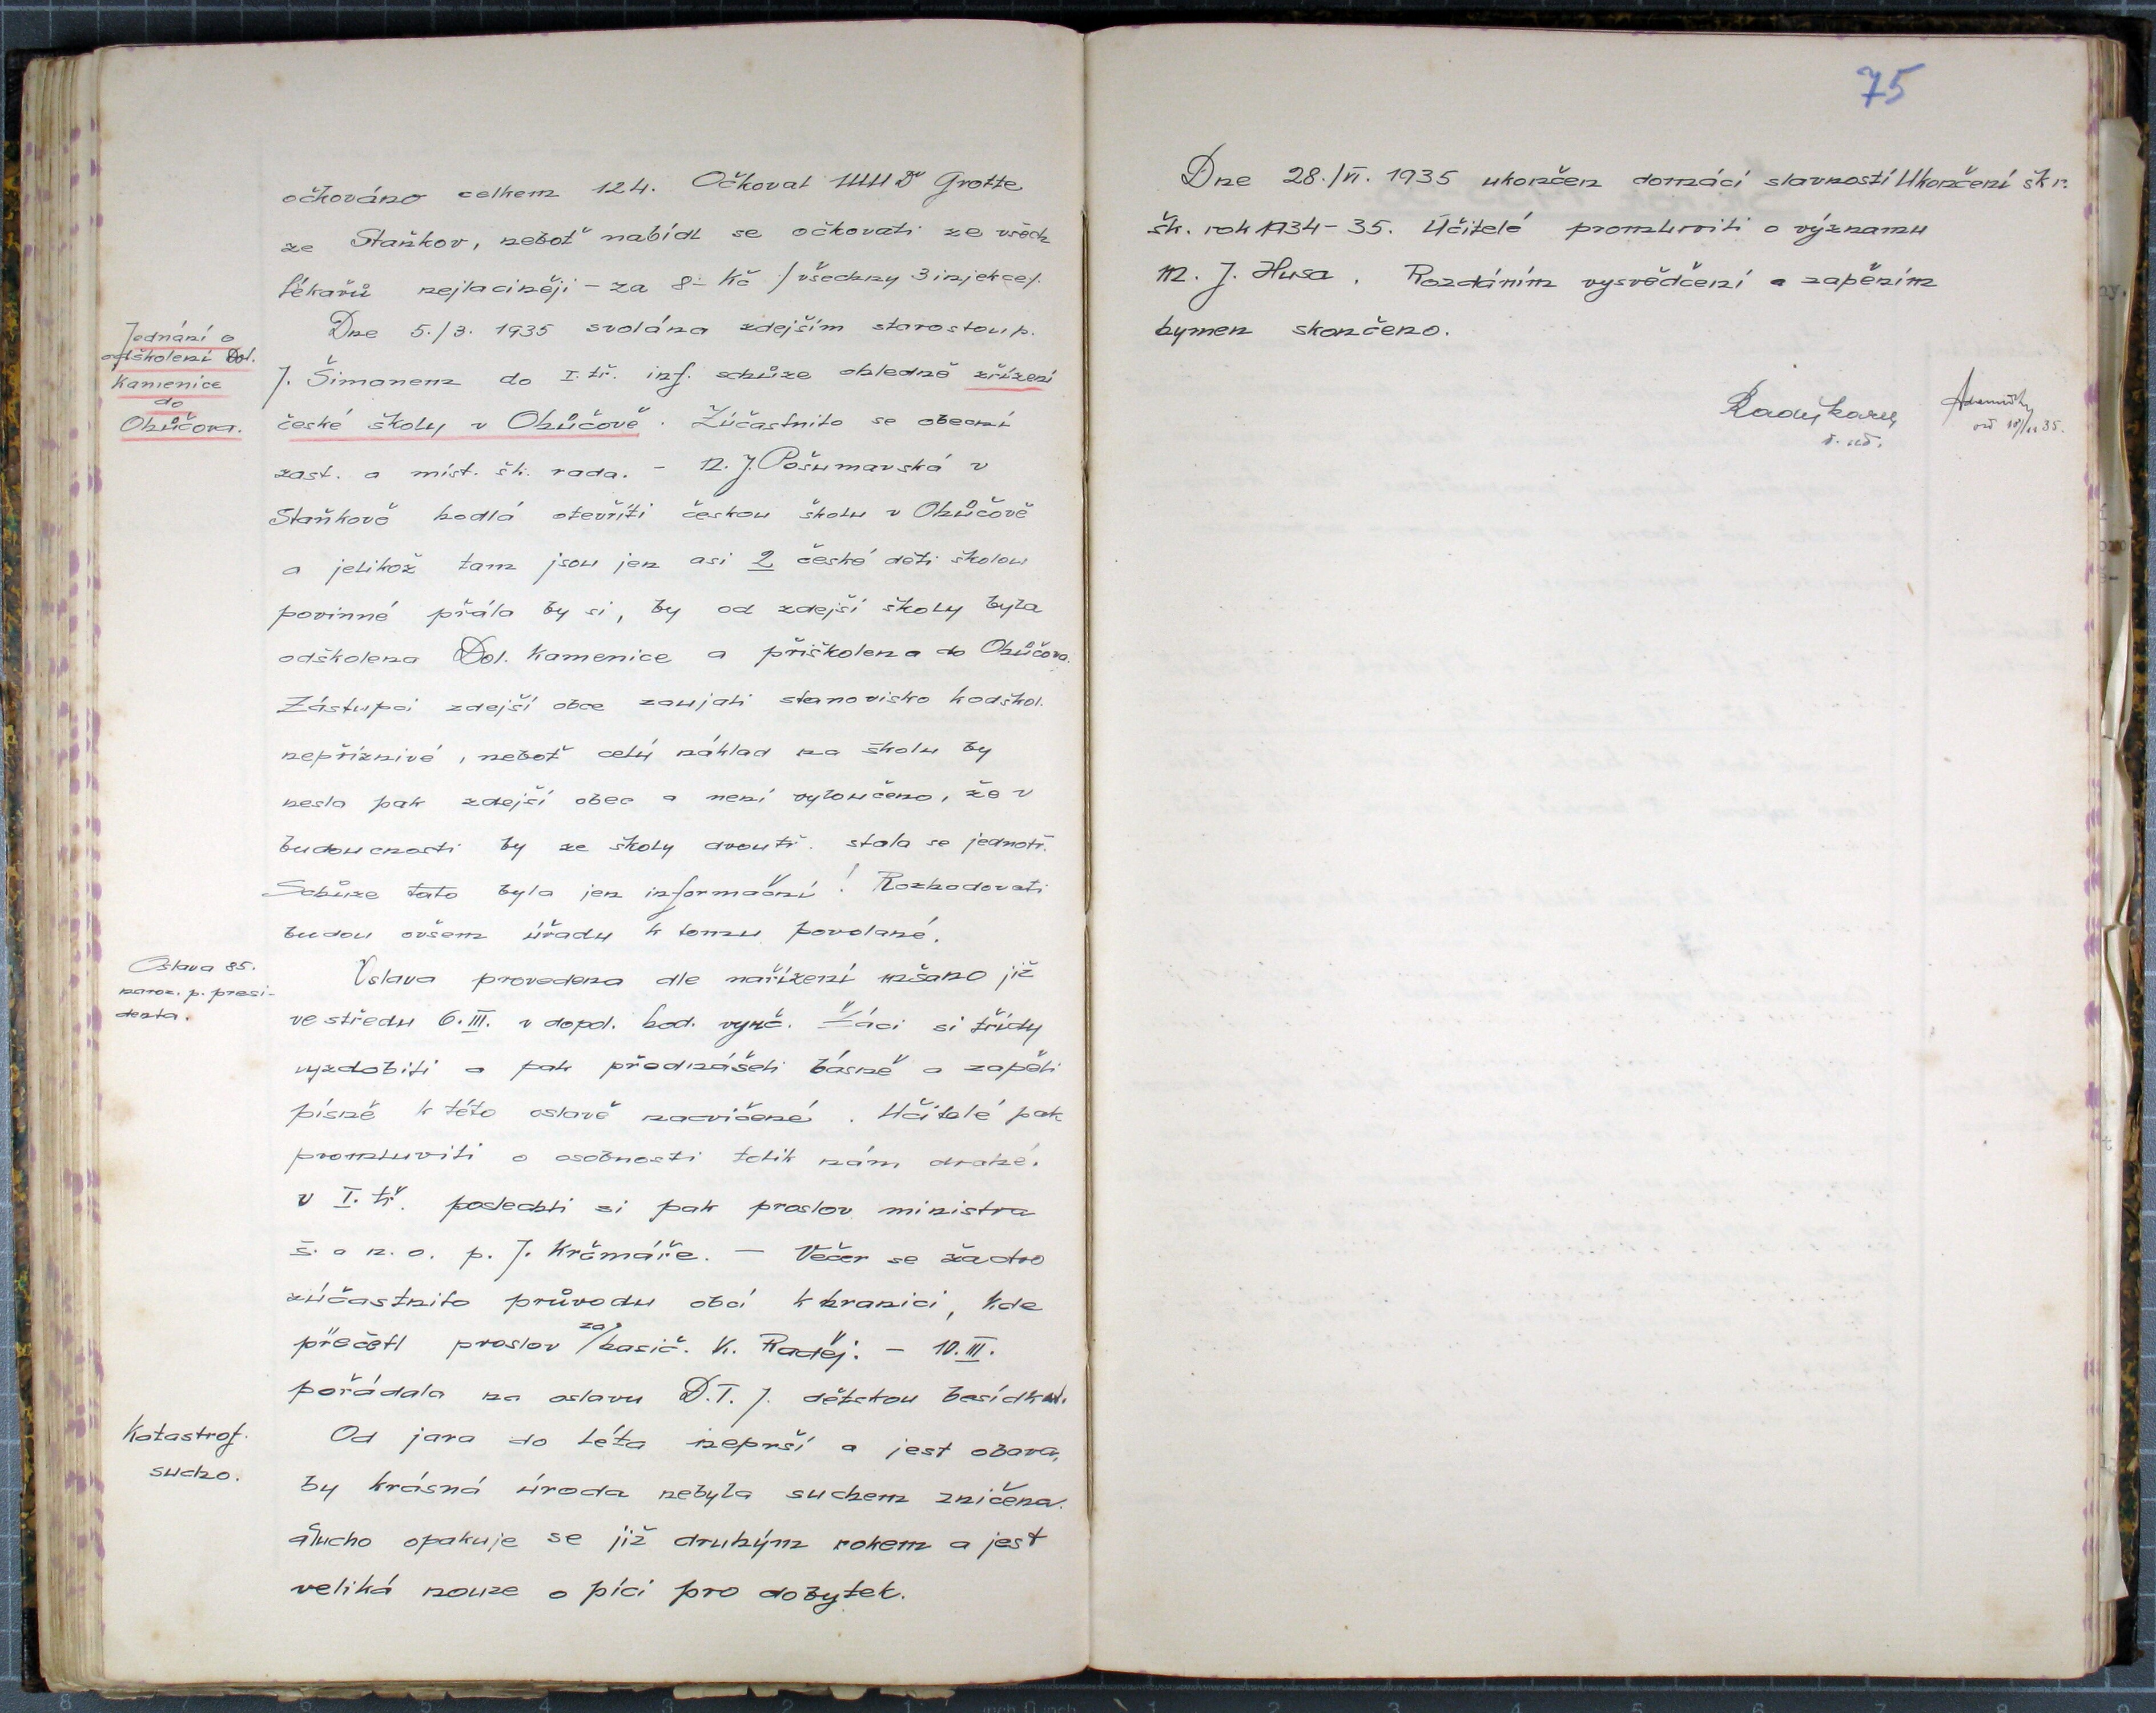 očkováno celkem 124. Očkoval MUDr Grotte
ze Staňkov, neboť nabídl se očkovati ze všech
lékařů nejlaciněji – za 8– Kč /všechny 3 injekce/.
Jednání o
odškolení Dol.
Kamenice
do
Ohůčova.
Dne 5./3. 1935 svolána zdejším starostou p.
J. Šimanem do I. tř. inf. schůze ohledně zřízení
české školy v Ohůčově. Zúčastnilo se obecní
zast. a míst. šk. rada. – N. J. Pošumavská v
Staňkově hodlá otevříti českou školu v Ohůčově
a jelikož tam jsou jen asi 2 české děti školou
povinné přála by si, by od zdejší školy byla
odškolena Dol. Kamenice a přiškolena do Ohůčova.
Zástupci zdejší obce zaujali stanovisko k odškol.
nepříznivé, neboť celý náklad na školu by
nesla pak zdejší obec a není vyloučeno, že v
budoucnosti by ze školy dvoutř. stala se jednotř.
Schůze tato byla jen informační! Rozhodovati
budou ovšem úřady k tomu povolané.
Oslava 85.
naroz. p. presi-
denta.
Oslava provedena dle nařízení mšano již
ve středu 6. III. v dopol. hod. vyuč. Žáci si třídy
vyzdobili a pak přednášeli básně a zapěli
písně k této oslavě nacvičené. Učitelé pak
promluvili o osobnosti tolik nám drahé.
v I. tř. poslechli si pak proslov ministra
š. a n. o. p. J. Krčmáře. – Večer se žactvo
zúčastnilo průvodu obcí k hranici, kde
přečetl proslov za/hasič. K. Raděj. – 10. III.
pořádala na oslavu D. T. J. dětskou besídku.
Katastrof.
sucho.
Od jara do léta neprší a jest obava,
by krásná úroda nebyla suchem zničena.
Sucho opakuje se již druhým rokem a jest
veliká nouze o píci pro dobytek.
75
Dne 28./VI. 1935 ukončen domácí slavností Ukončení šk r.
šk. rok 1934–35. Učitelé promluvili o významu
M. J. Husa. Rozdáním vysvědčení a zapěním
hymen skončeno.